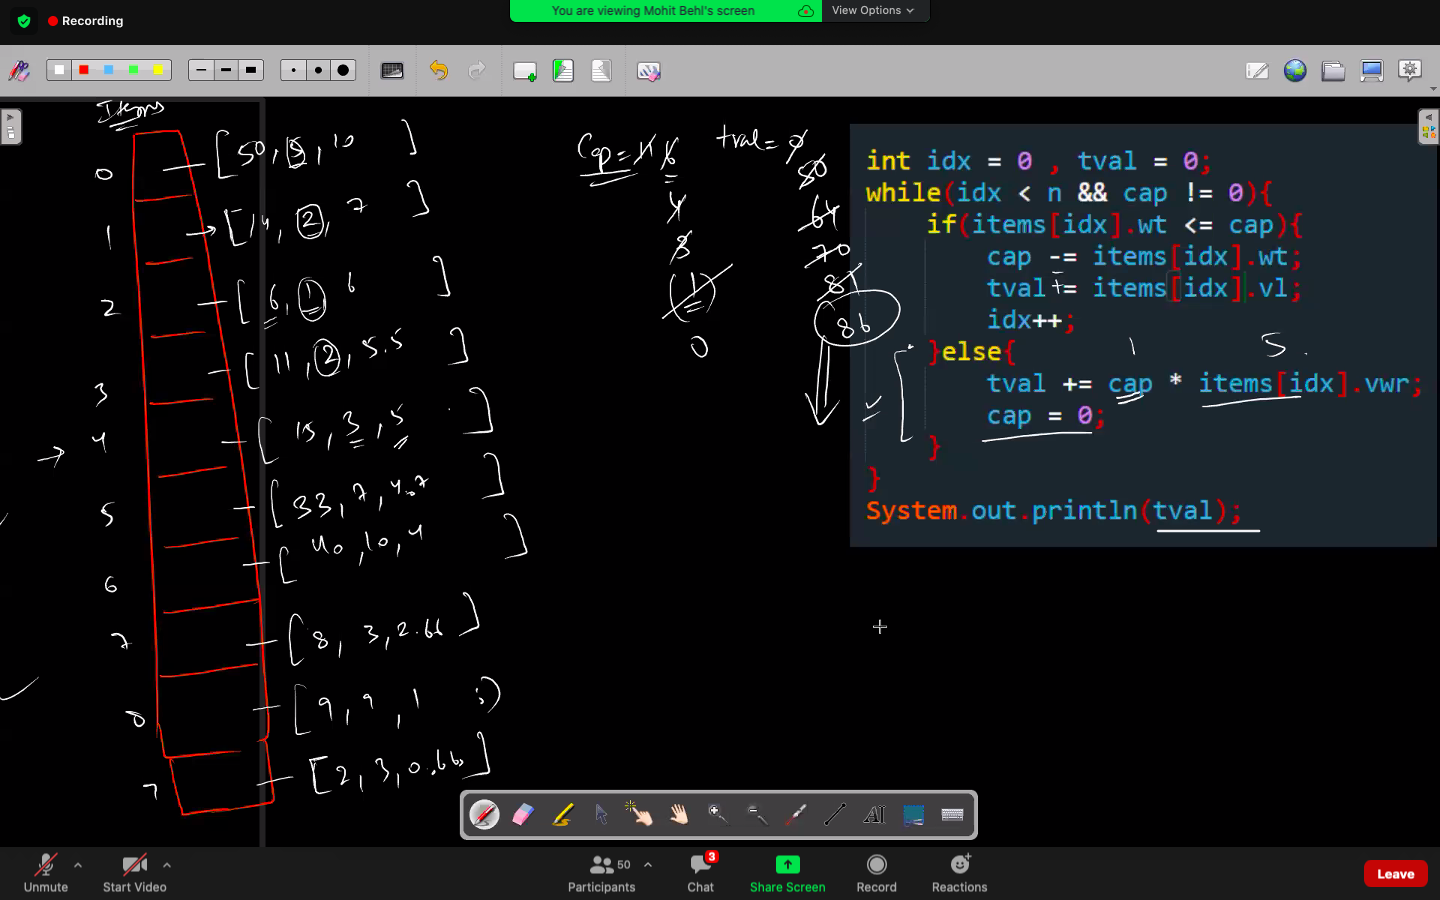 Recording
You are viewing Mohit Behl's screen
View Options
Items
0 [50, 5, 10 ]
1 [14, 2, 7 ]
2 [ 6, 1, 6 ]
3 [ 11, 2, 5.5 ]
4 [ 15, 3, 5 ]
5 [ 33, 7, 4.7 ]
6 [ 40, 10, 4 ]
7 [ 8, 3, 2.66 ]
8 [ 9, 9, 1 ]
[2, 3, 0.66]
Cap = 11 6
4
3
(1)
0
tval = 0
50
64
70
81
86
int idx = 0 , tval = 0;
while(idx < n && cap != 0){
if(items[idx].wt <= cap){
cap -= items[idx].wt;
tval += items[idx].vl;
idx++;
}else{
1 5
tval += cap * items[idx].vwr;
cap = 0;
}
}
System.out.println(tval);
Unmute
Start Video
50
Participants
3
Chat
Share Screen
Record
Reactions
Leave